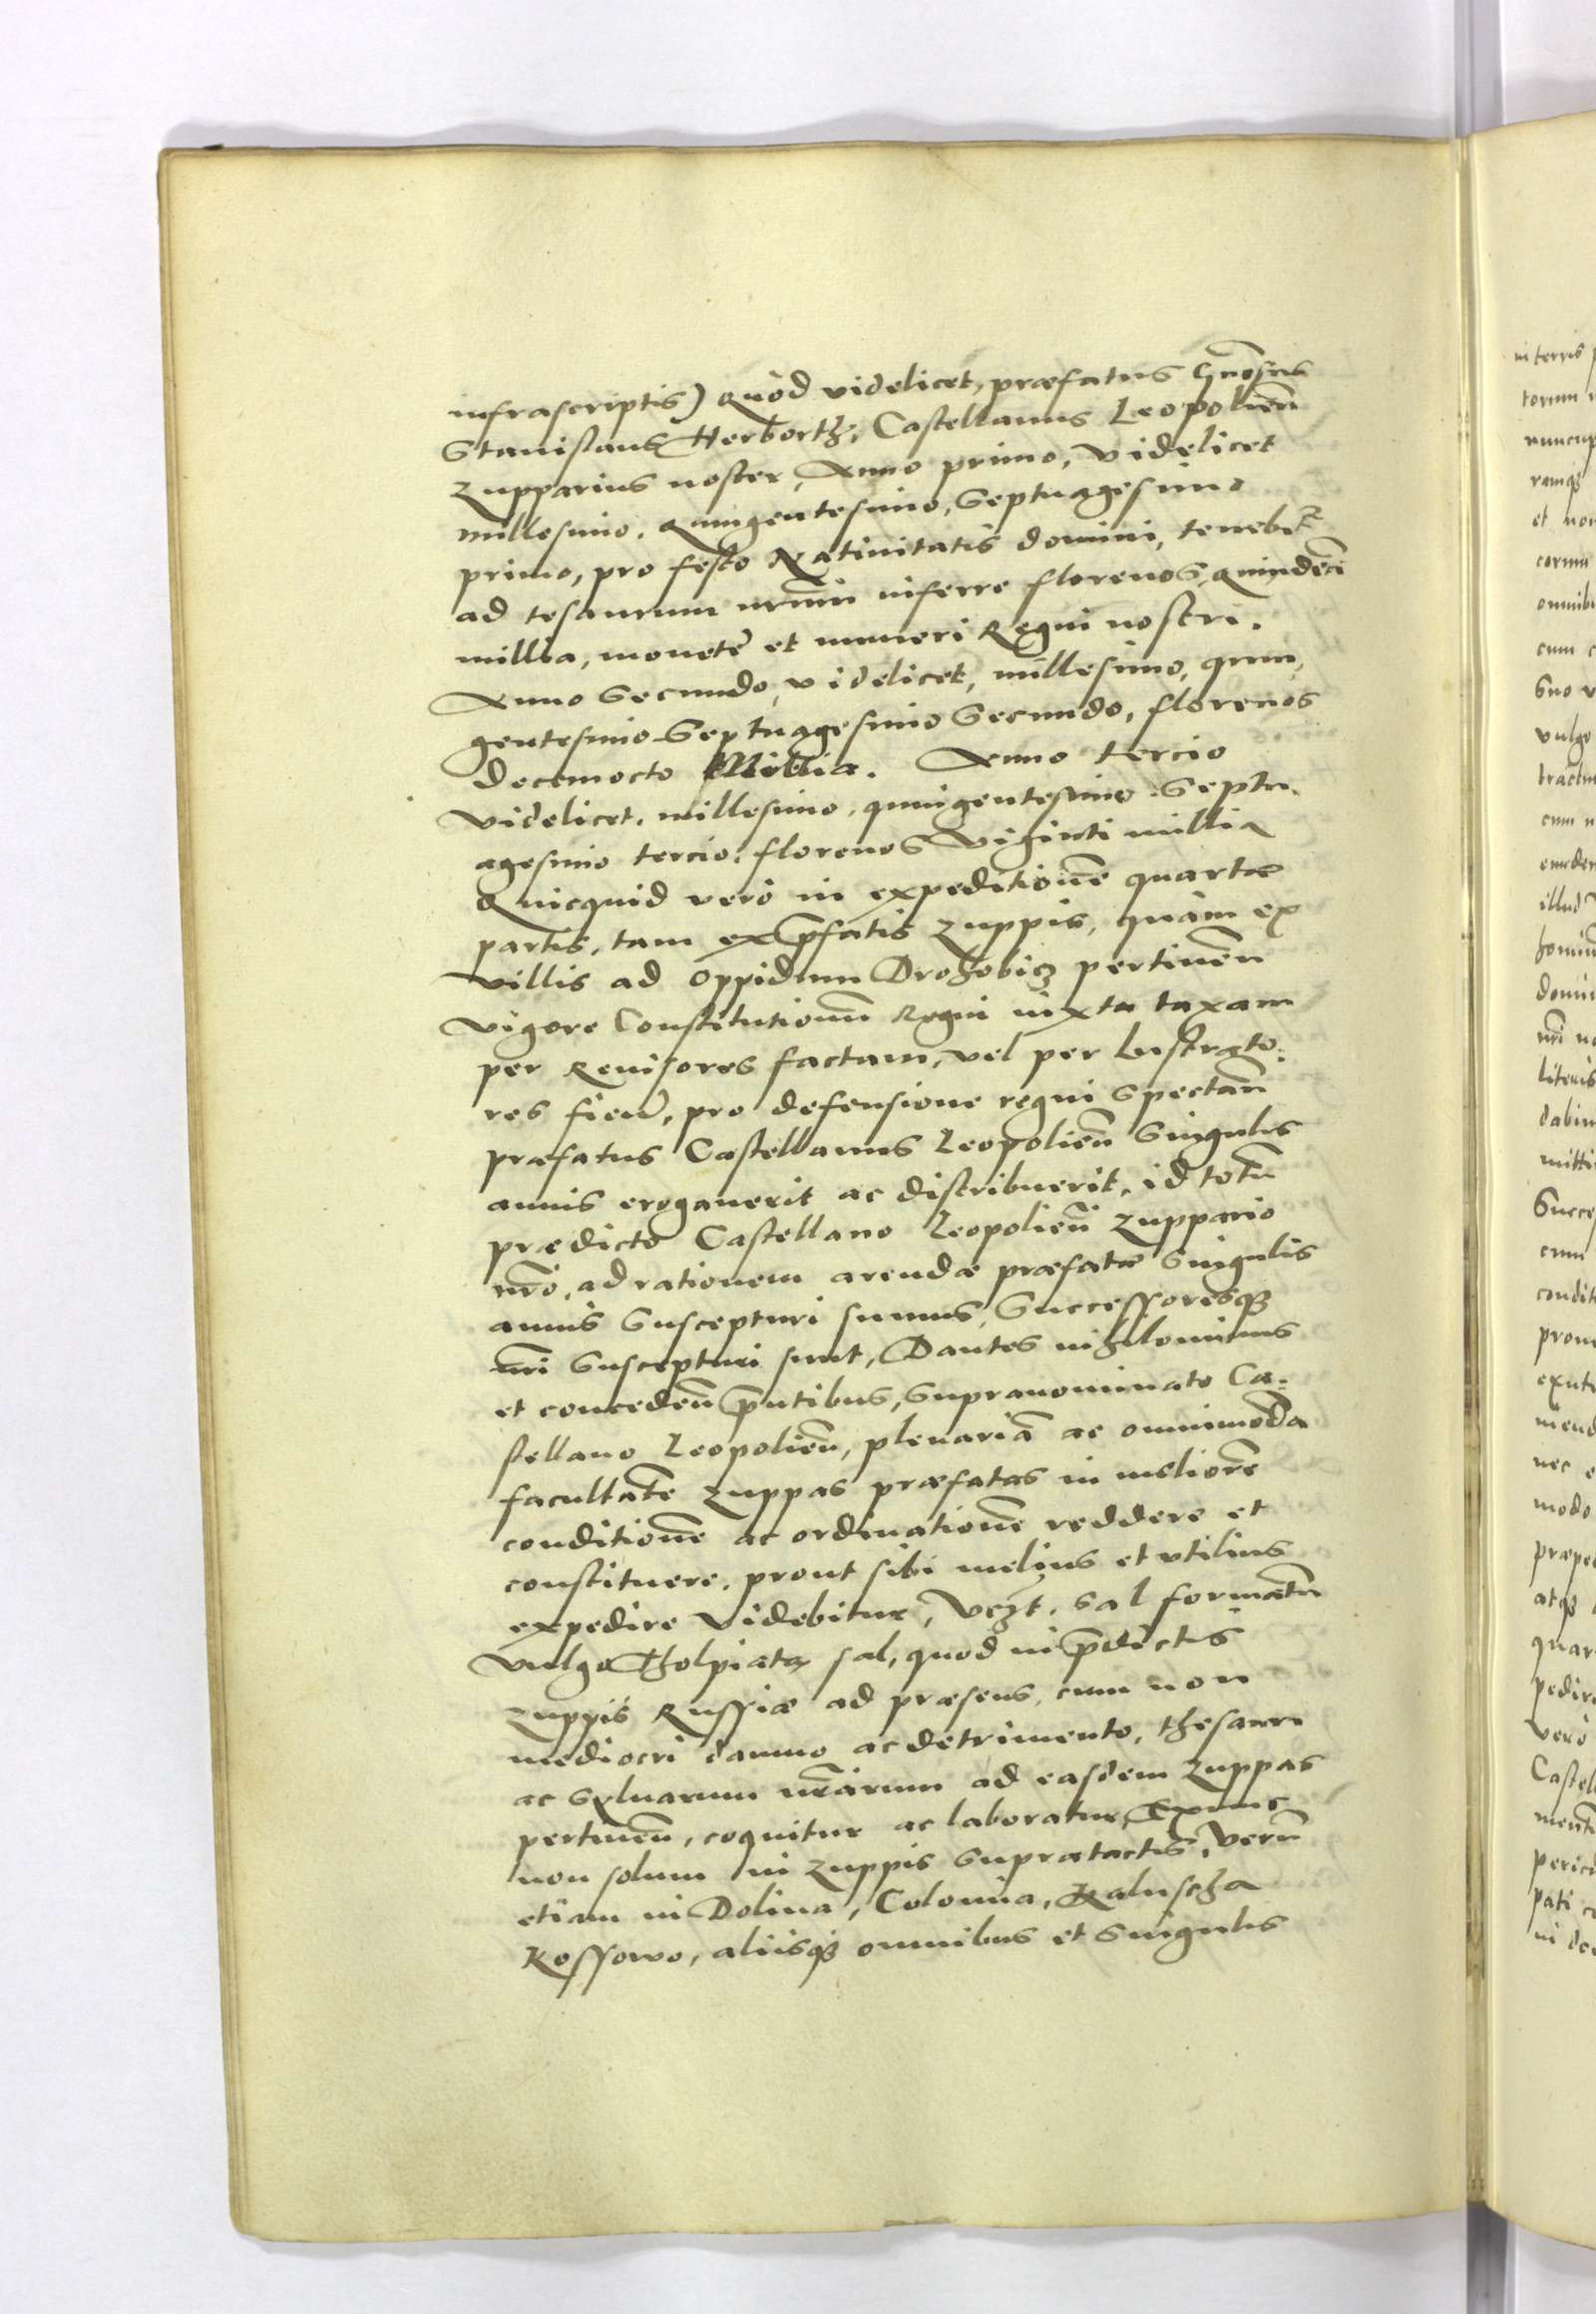 infrascriptis) quòd videlicet, præfatus Gnosus
Stanislaus Herborth, Castellanus Leopolien̄
Zupparius noster, Anno primo, videlicet
millesimo, Quingentesimo, Septuagesimo
primo, pro festo Natiuitatis domini, tenebit̃
ad tesaurum nr̄um inferre florenos, quindeci̅
millia, monetę et numeri Regni nostri.
Anno Secundo, videlicet, millesimo, quin,
gentesimo Septuagesimo Secundo, florenos
decemocto Millia. Anno tercio
videlicet, millesimo, quingentesimo Septu,
agesimo tercio, florenos Viginti millia
Quicquid verò in expeditione̅ quartæ
partis, tam ex p̄fatis zuppis, quàm ex
villis ad oppidum Drohobicz pertinen̄
vigore Constitutionū Regni iuxta taxam
per Reuisores factam, vel per lustrato:
res fien̄, pro defensione regni spectan̄
præfatus Castellanus Leopolien̄ Singulis
annis erogauerit ac distribuerit, id totū
prædicto Castellano Leopolien̄ zuppario
nr̄o, ad rationem arendæ præfatæ Singulis
annis Suscepturi sumus, Successoresq̃
nr̄i Suscepturi sunt, Dantes nihilominus
et conceden̄ p̄ntibus, Supranominato Ca:
stellano Leopolien̄, plenariā ac omnimodā
facultate̅ zuppas præfatas in meliore̅
conditione̅ ac ordinatione̅ reddere et
constituere, prout sibi melius et vtilius
expedire videbitur, Vczt. Sal formatū
vulgo Tholpiatę sal, quod in p̄dictis
zuppis Russiæ ad præsens, cum non
mediocri damno ac detrimento, thesauri
ac Syluarum nr̄arum ad easdem zuppas
pertinen̄, coquitur ac laboratur, Ex nunc
non solum in zuppis Supratactis, verū
etiam in Dolina, Colomia, Kaluscha
Kossowo, aliisq̃ omnibus et Singulis